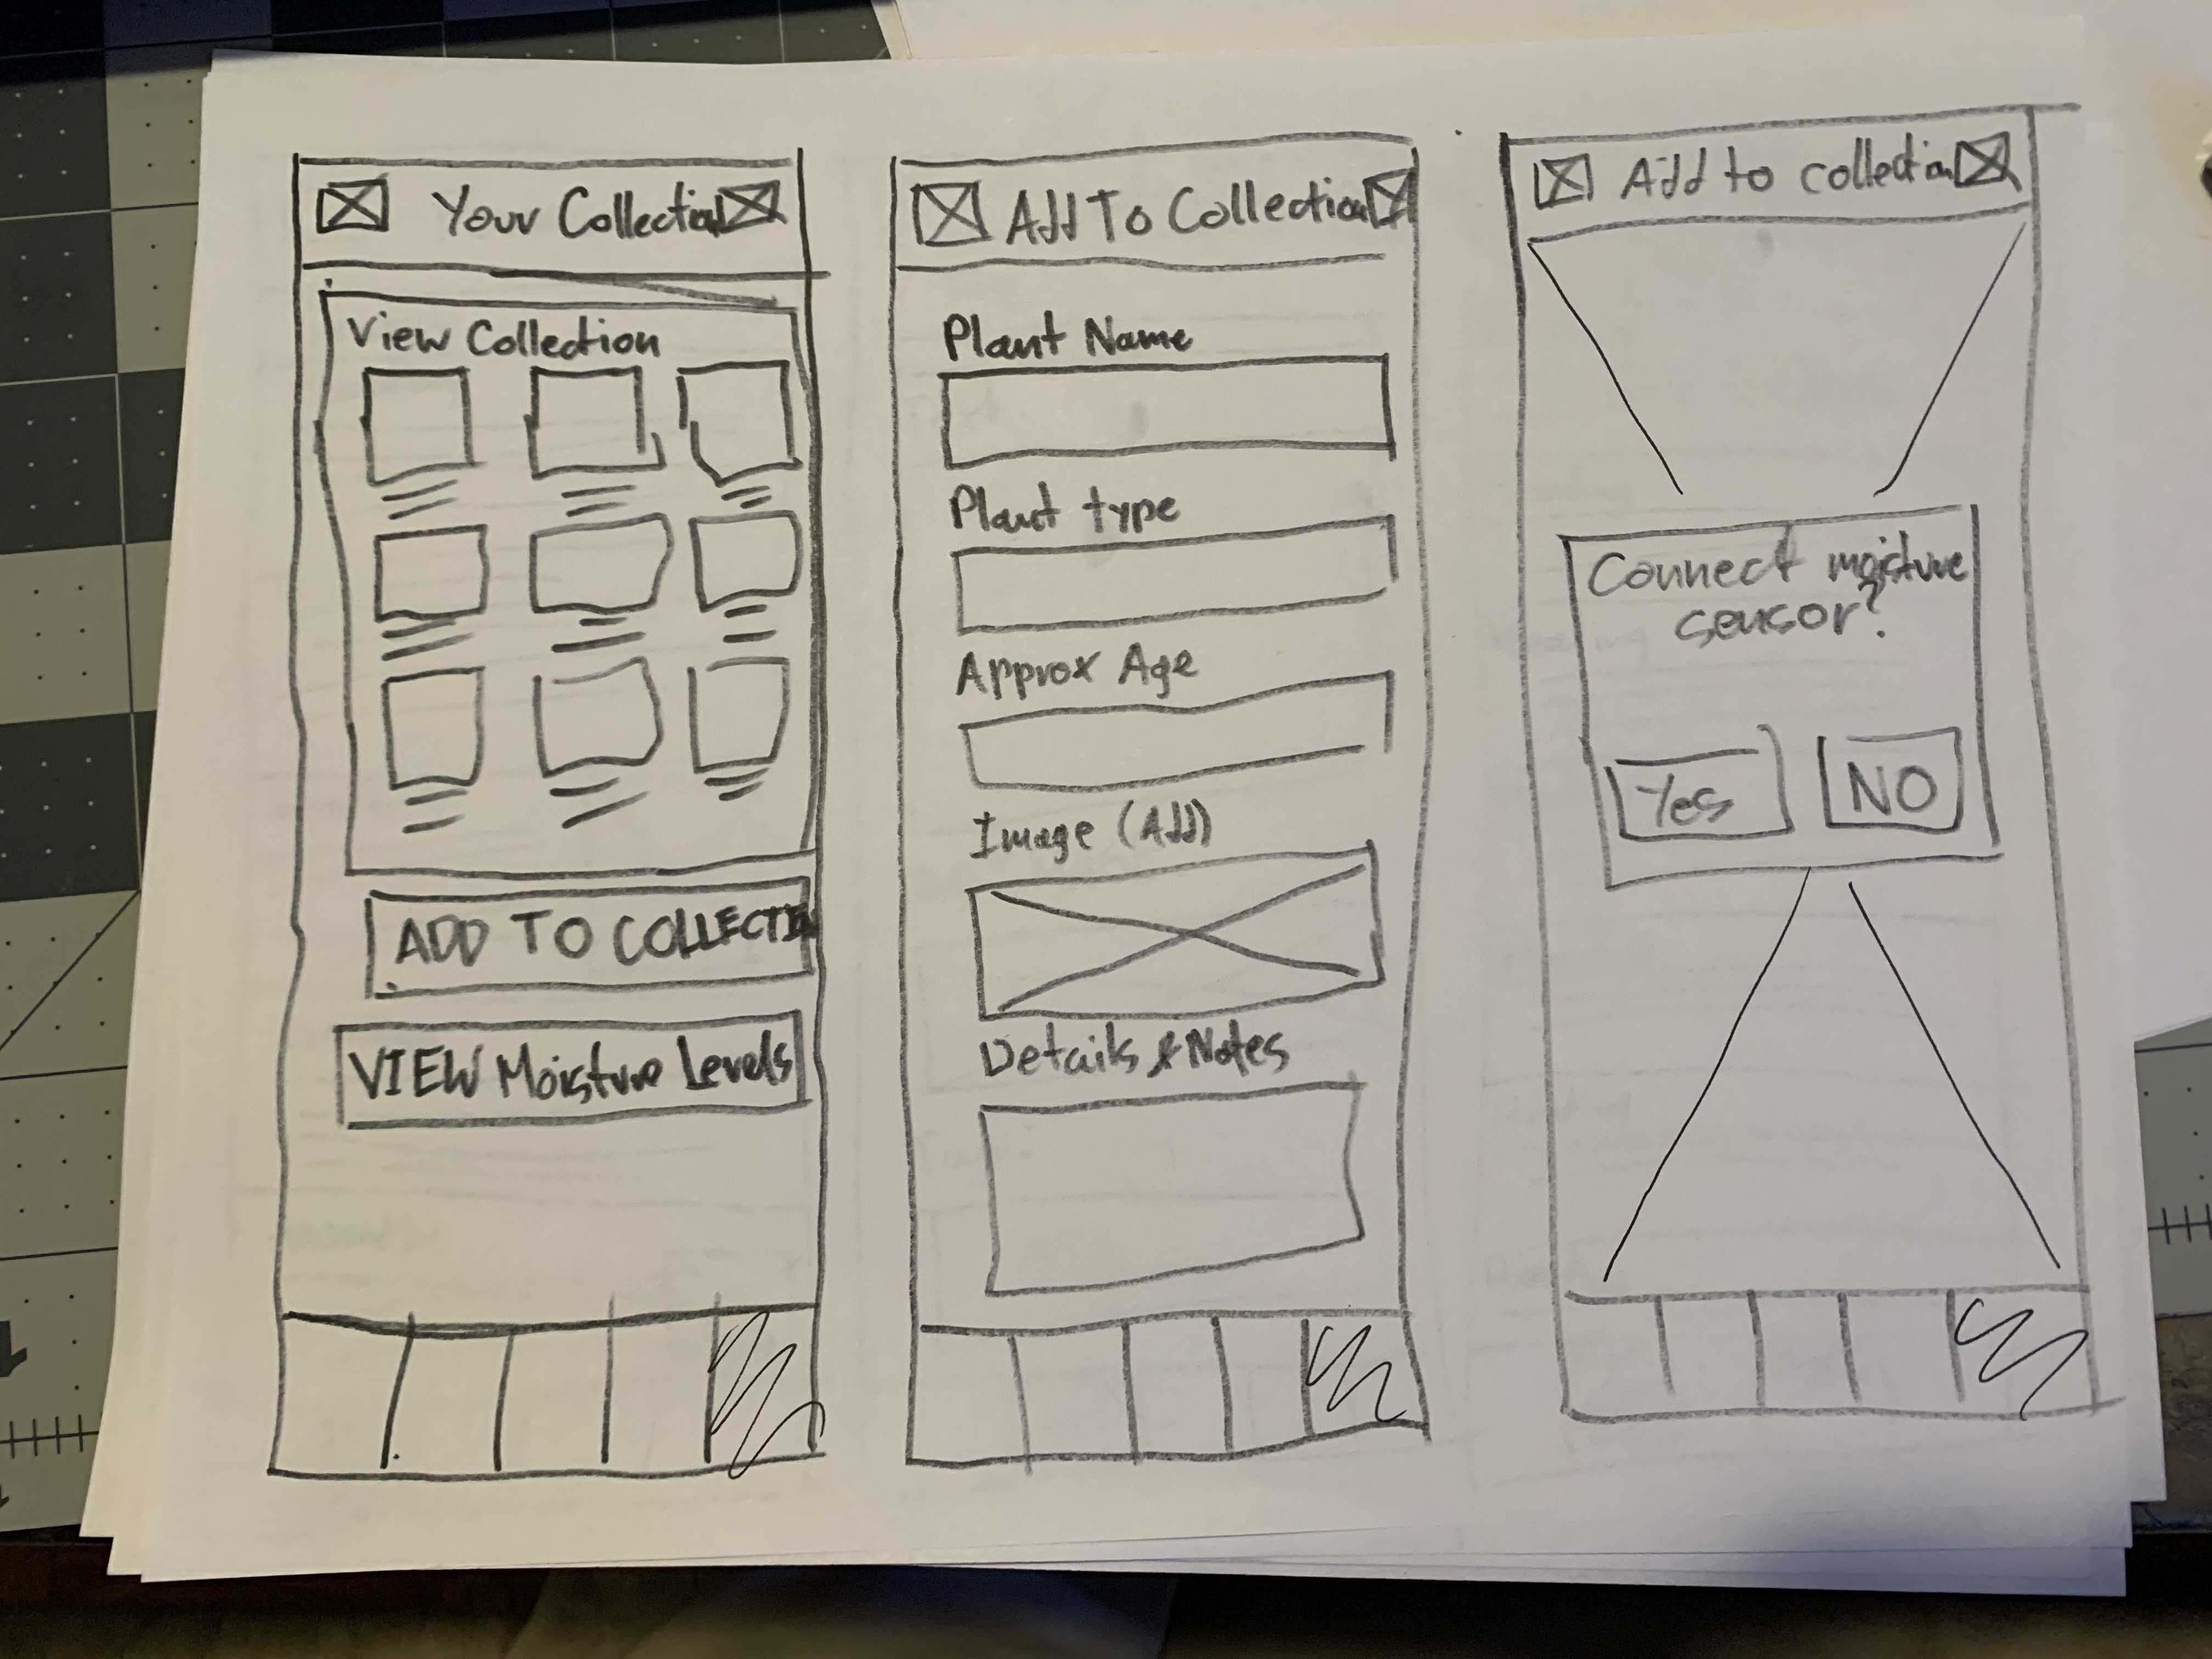 Your Collection
View Collection
ADD TO COLLECTION
VIEW Moisture Levels
Add To Collection
Plant Name
Plant type
Approx Age
Image (Add)
Details & Notes
Add to collection
Connect moisture
sensor?
Yes
NO